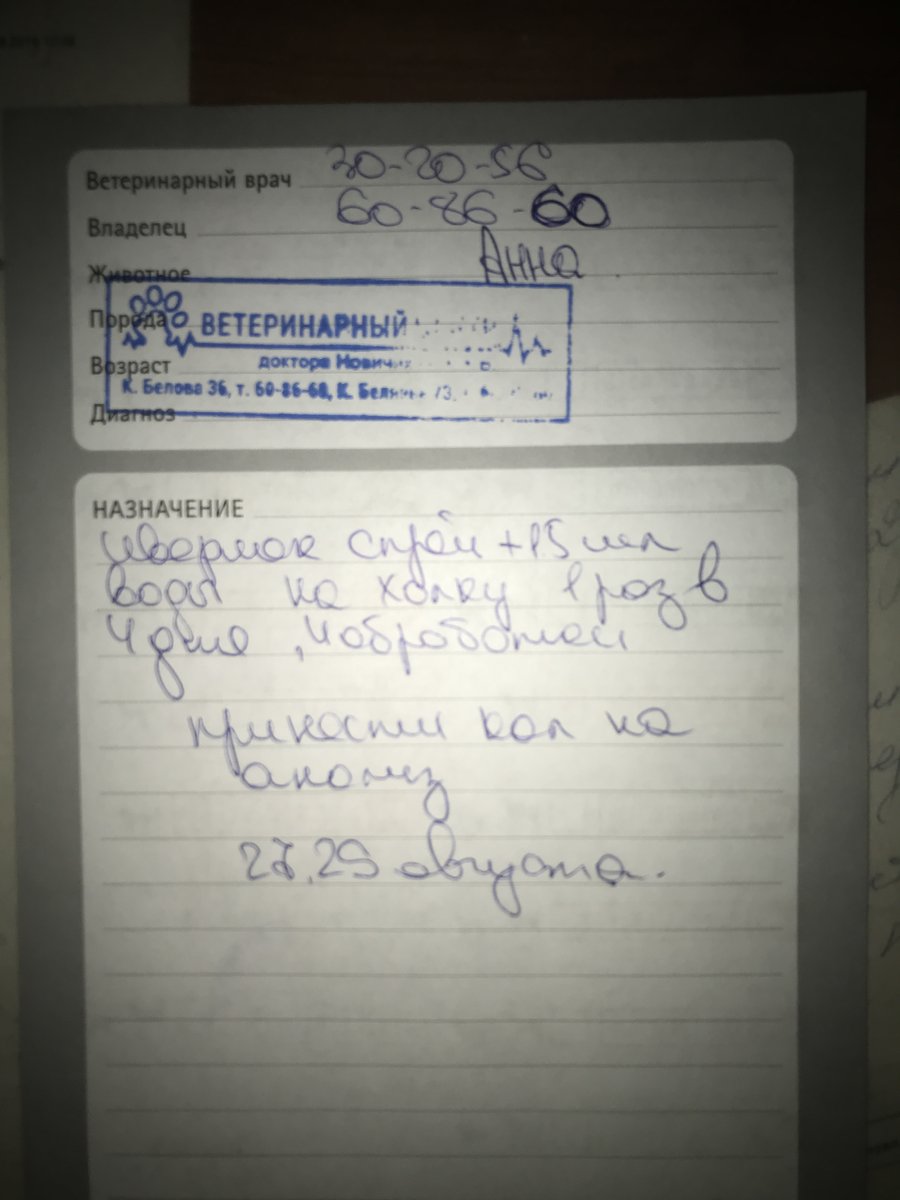 Ветеринарный врач 30-20-56
Владелец 60-86-60
Животное Анна
Порода
ВЕТЕРИНАРНЫЙ
Возраст
доктора Нович
К. Белова 36, т. 60-86-60, К.
Диагноз
НАЗНАЧЕНИЕ
ивермек спрей +15 мл
воды на холку 1 раз в
4 дня, 4 обработки
принести кал на
анализ
27, 29 августа.